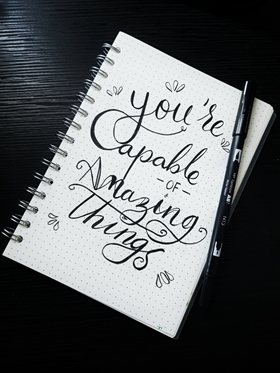 you're
Capable
-OF-
Amazing
Things